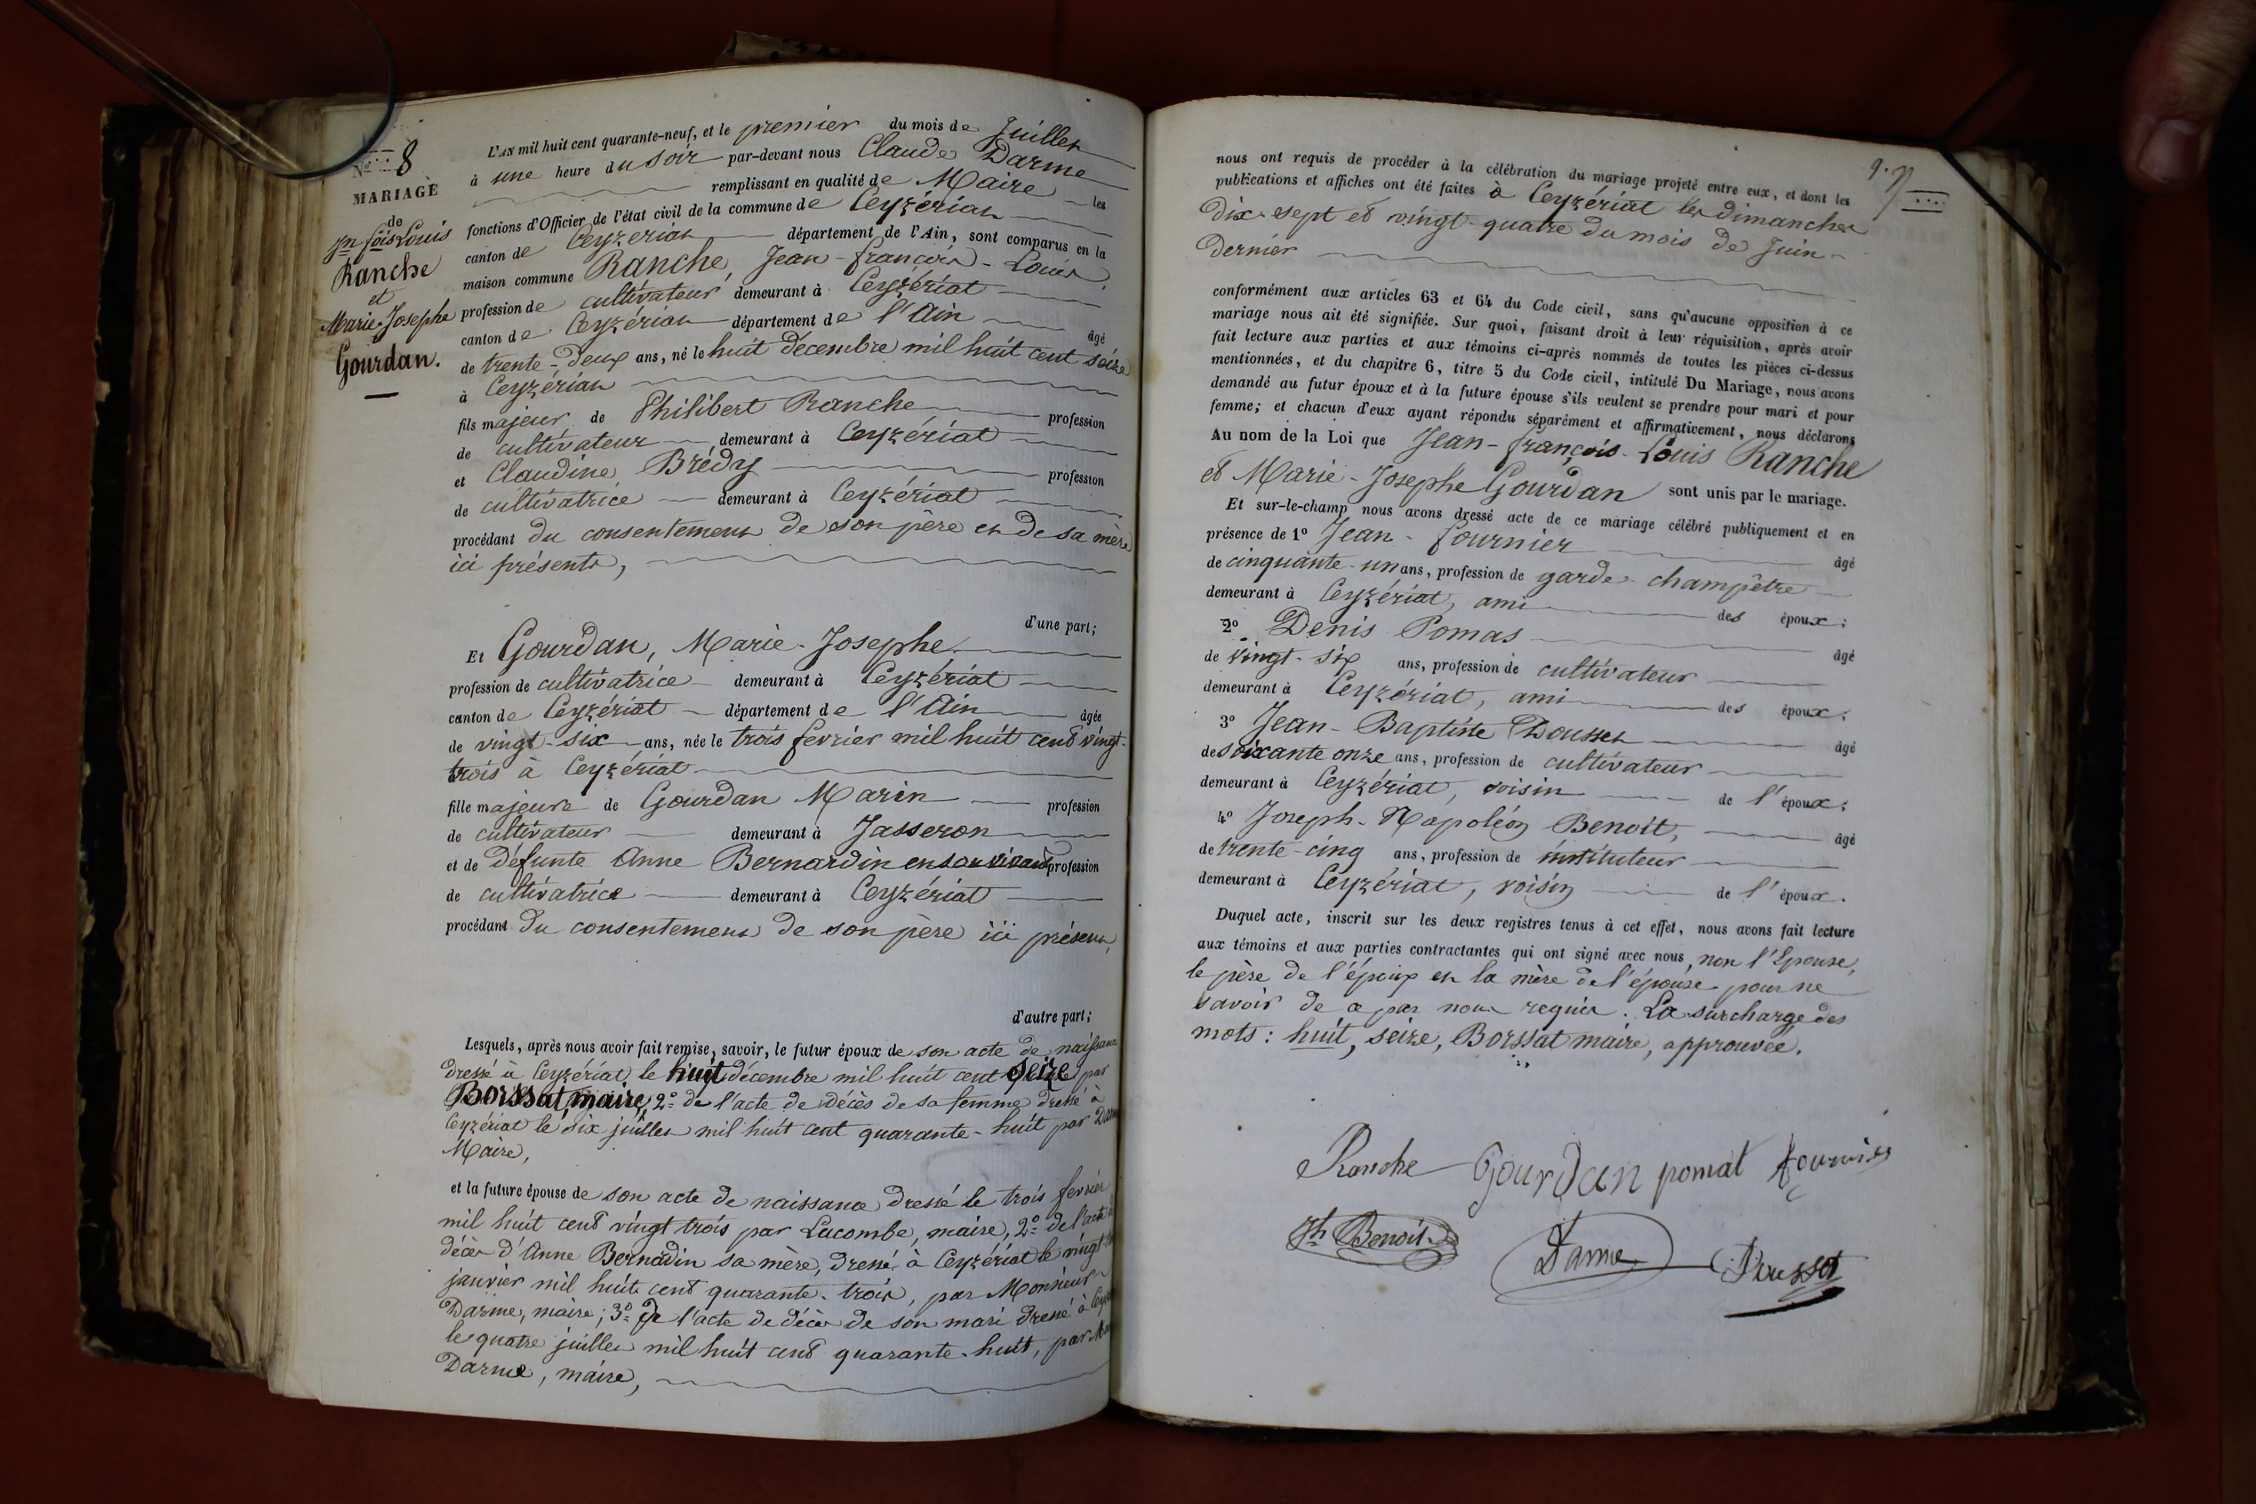 N.º 8
MARIAGE
de
Jn fçois Louis
Ranche
et
Marie-Josephe
Gourdan.
L'AN mil huit cent quarante-neuf, et le premier du mois de Juillet
à une heure du soir par-devant nous Claude Darme
remplissant en qualité de Maire les
fonctions d'Officier de l'état civil de la commune de Ceyzériat
canton de Ceyzériat département de l'Ain, sont comparus en la
maison commune Ranche, Jean-françois-Louis,
profession de cultivateur demeurant à Ceyzériat
canton de Ceyzériat département de l'Ain âgé
de trente-deux ans, né le huit décembre mil huit cent seize
à Ceyzériat
fils majeur de Philibert Ranche profession
de cultivateur demeurant à Ceyzériat
et Claudine Brédy profession
de cultivatrice demeurant à Ceyzériat
procédant du consentement de son père et de sa mère
ici présents,
d'une part;
Et Gourdan, Marie-Josephe
profession de cultivatrice demeurant à Ceyzériat
canton de Ceyzériat département de l'Ain âgée
de vingt-six ans, née le trois février mil huit cent vingt-
trois à Ceyzériat
fille majeure de Gourdan Marin profession
de cultivateur demeurant à Jasseron
et de défunte Anne Bernardin en son vivant profession
de cultivatrice demeurant à Ceyzériat
procédant du consentement de son père ici présent,
d'autre part;
Lesquels, après nous avoir fait remise, savoir, le futur époux de son acte de naissance
dressé à Ceyzériat le huit décembre mil huit cent seize par
Borssat, maire, 2º de l'acte de décès de sa femme dressé à
Ceyzériat le six juillet mil huit cent quarante-huit par Darme
Maire,
et la future épouse de son acte de naissance dressé le trois février
mil huit cent vingt trois par Lacombe, maire, 2º de l'acte de
décès d'Anne Bernadin sa mère, dressé à Ceyzériat le vingt
janvier mil huit cent quarante-trois, par Monsieur
Darme, maire; 3º de l'acte de décès de son mari dressé à
le quatre juillet mil huit cent quarante-huit, par
Darme, maire,
nous ont requis de procéder à la célébration du mariage projeté entre eux, et dont les
publications et affiches ont été faites à Ceyzériat les dimanches
dix-sept et vingt-quatre du mois de Juin
dernier
conformément aux articles 63 et 64 du Code civil, sans qu'aucune opposition à ce
mariage nous ait été signifiée. Sur quoi, faisant droit à leur réquisition, après avoir
fait lecture aux parties et aux témoins ci-après nommés de toutes les pièces ci-dessus
mentionnées, et du chapitre 6, titre 5 du Code civil, intitulé Du Mariage, nous avons
demandé au futur époux et à la future épouse s'ils veulent se prendre pour mari et pour
femme; et chacun d'eux ayant répondu séparément et affirmativement, nous déclarons
Au nom de la Loi que Jean-françois-Louis Ranche
et Marie-Josephe Gourdan sont unis par le mariage.
Et sur-le-champ nous avons dressé acte de ce mariage célébré publiquement et en
présence de 1º Jean-fournier âgé
de cinquante-un ans, profession de garde-champêtre
demeurant à Ceyzériat, ami des époux;
2º Denis Pomas âgé
de vingt-six ans, profession de cultivateur
demeurant à Ceyzériat, ami des époux;
3º Jean-Baptiste Dousset âgé
de soixante onze ans, profession de cultivateur
demeurant à Ceyzériat, voisin de l'époux;
4º Joseph-Napoléon Benoit, âgé
de trente-cinq ans, profession de instituteur
demeurant à Ceyzériat, voisin de l'époux.
Duquel acte, inscrit sur les deux registres tenus à cet effet, nous avons fait lecture
aux témoins et aux parties contractantes qui ont signé avec nous, non l'Epouse,
le père de l'époux et la mère de l'épouse pour ne
savoir de ce par nous requis. La surcharge des
mots: huit, seize, Borssat maire, approuvée.
Ranche Gourdan pomat fournier
Jh Benoit Darme Dousset